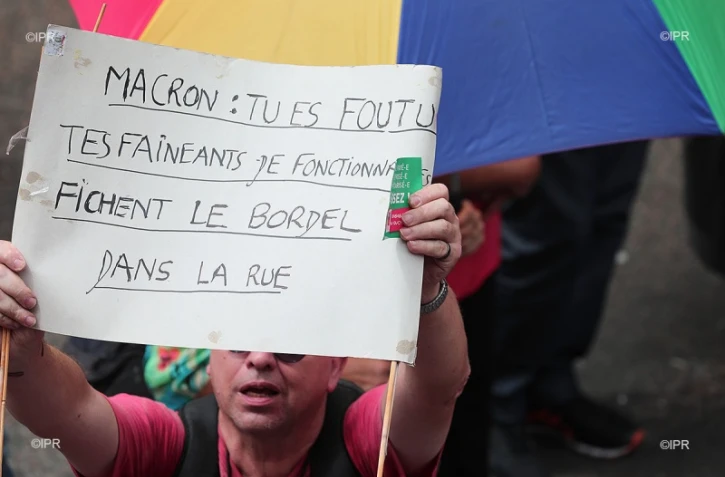 ©IPR
©IPR
MACRON : TU ES FOUTU
TES FAINEANTS DE FONCTIONNA
FICHENT LE BORDEL
DANS LA RUE
©IPR
©IPR